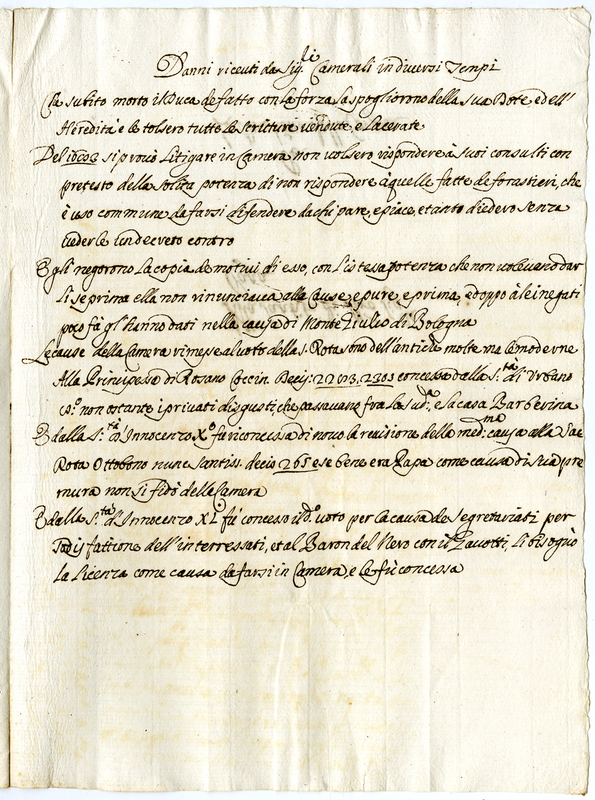 Danni riceuti da Sig.li Camerali in diuersi Tempi
Che subito morto il Duca de fatto con la forza la spogliorono della sua Dote, e dell'
Heredità e le tolsero tutte le scritture uendute, e lacerate
Del si prouò litigare in Camera non uolsero rispondere à suoi consulti con
pretesto della solita potenza di non rispondere à quelle fatte de forastieri, che
è uso commune da farsi difendere da chi pare, e piace, et anto diedero senza
uederle un decreto contro
E gli negorono la copia de motiui di esso, con l'istesa potenza che non uoleuano dar
li se prima ella non rinunciaua alla Cause, e pure, e prima, e doppo à lei negati
poco fà gl'hanno dati nella causa di Monte Giulio di Bologna
Le cause della Camera rimesse al uoto della S. Rota sono dell'antiche molte ma le moderne
Alla Principessa di Rosano Coccin. Decis: 2203, 2303 concessa dalla S.tà di Urbano
non ostante i priuati disgusti, che passauano fra la Sud.a, e la casa Barberina
E dalla S.tà d'Innocenzo X.o fù riconcessa di nouo la reuisione delle med.ma causa alla Sac
Rota Ottobono nunc Santiss. decis 265 e se bene era Papa come causa di sua pre
mura non si fidò della Camera
E dalla S.tà d'Innocenzo XI fù concesso il d.o uoto per la causa de Segretariati per
fattione dell'interressati, et al Baron del Nero con il Zauotti, li bisognò
la licenza come causa da farsi in Camera, e le fù concessa